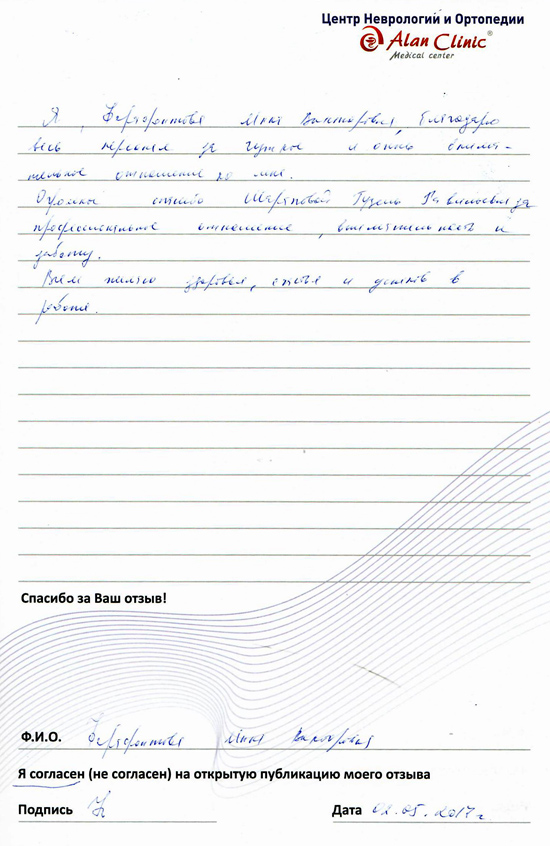 Центр Неврологий и Ортопедии
Alan Clinic®
Medical center
Я, Викторовна, благодарю
весь персонал за чуткое и очень внима-
тельное отношение ко мне.
Огромное спасибо Шариповой Гузель за
профессиональное отношение, внимательность и
заботу.
Всем желаю здоровья, счастья и успехов в
работе.
Спасибо за Ваш отзыв!
Ф.И.О. Викторовна
Я согласен (не согласен) на открытую публикацию моего отзыва
Подпись Дата 02.05.2017г.